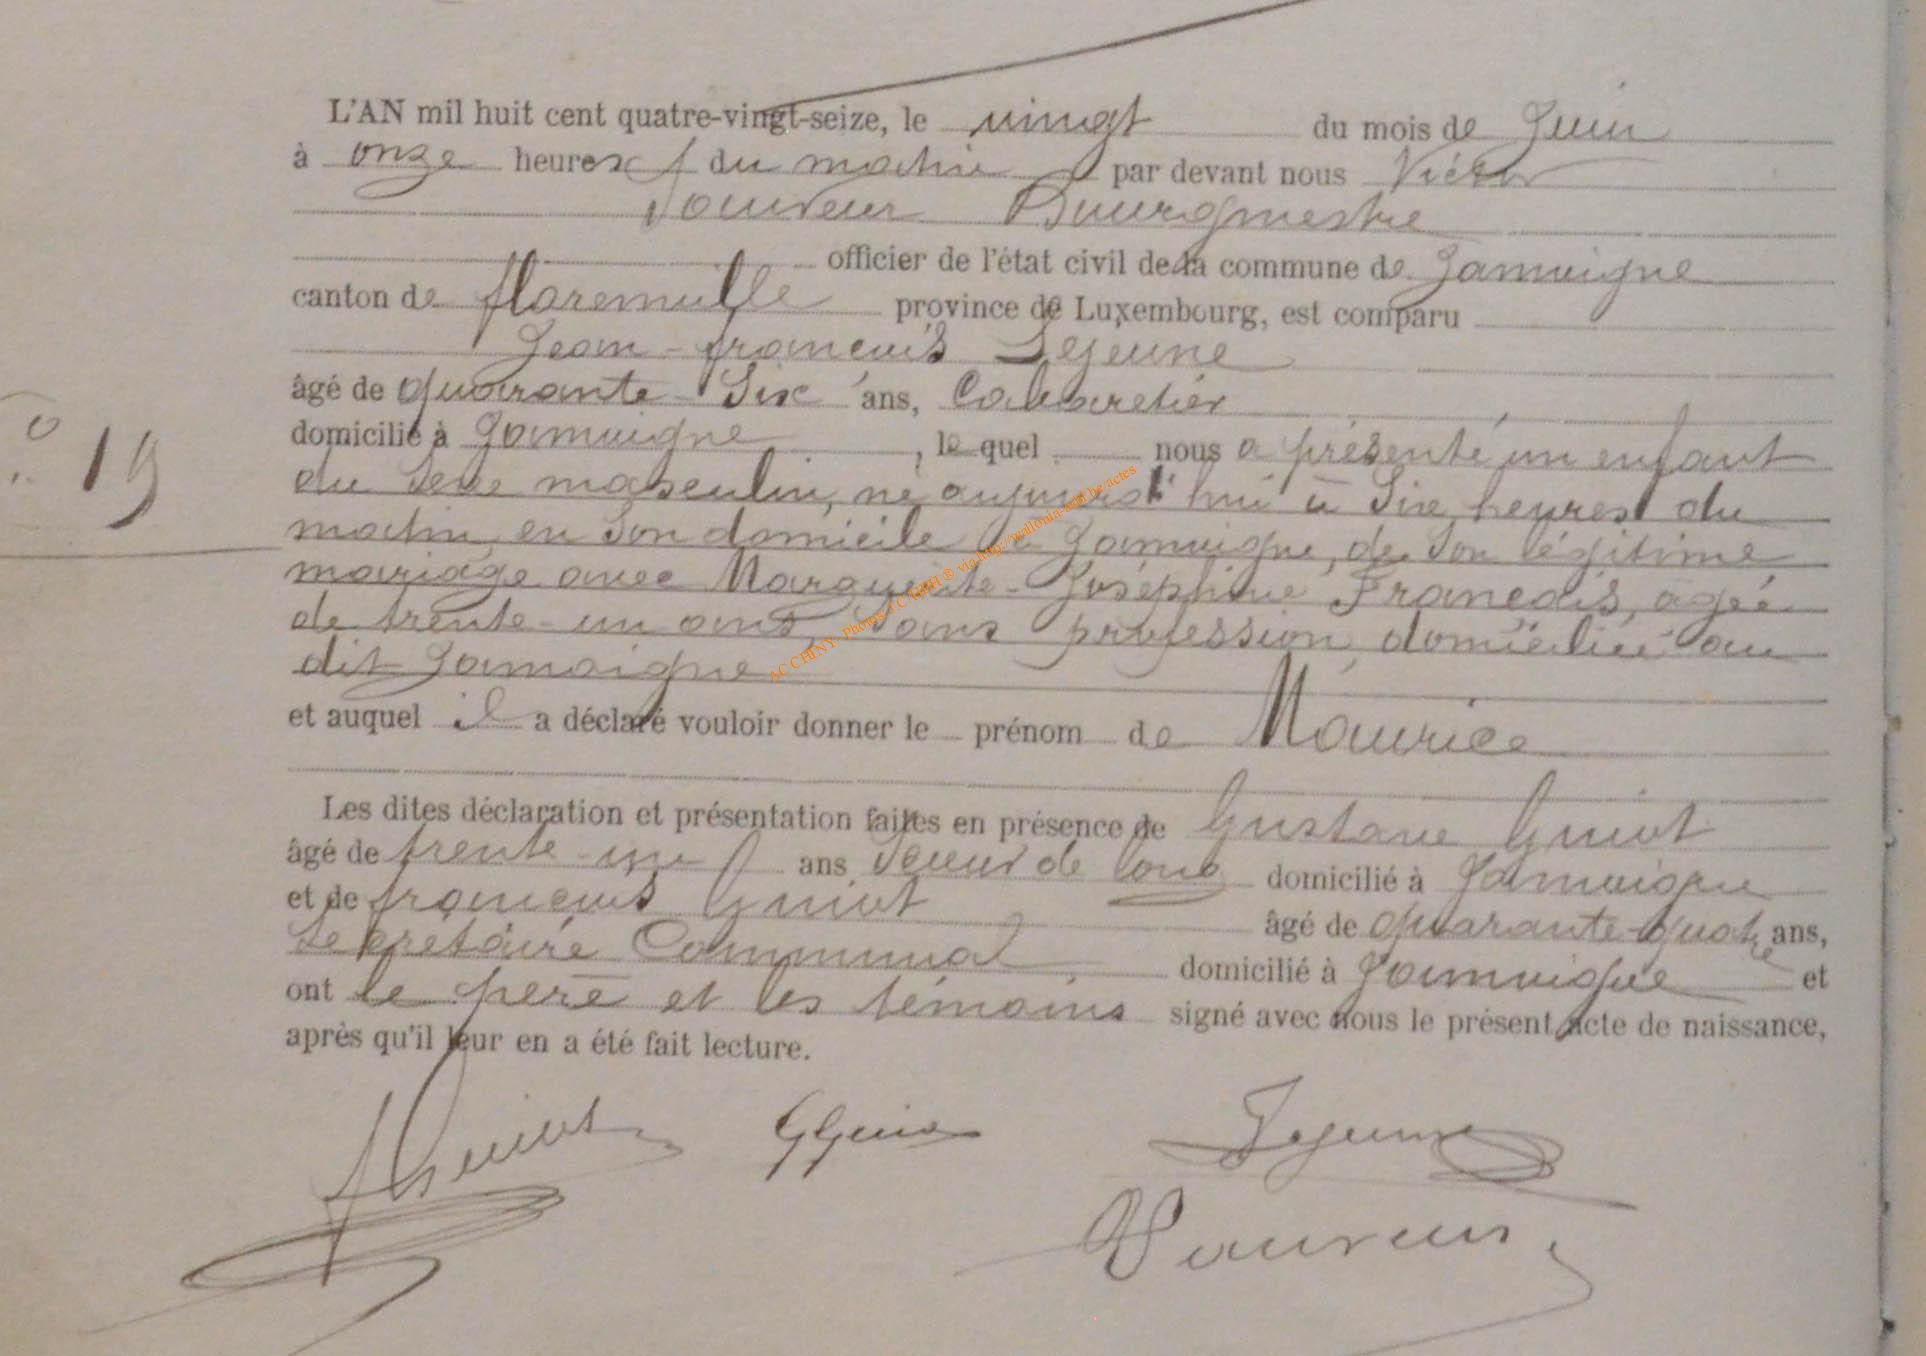 L'AN mil huit cent quatre-vingt-seize, le vingt du mois de Juin
à onze heures du matin par devant nous Victor
Sauveur Bourgmestre
officier de l'état civil de la commune de Jamoigne
canton de florenville province de Luxembourg, est comparu
Jean-françois Lejeune
âgé de quarante-Six ans, Cabaretier
domicilié à Jamoigne, le quel nous a présenté un enfant
du Sexe masculin, né aujourd'hui à Six heures du
matin, en Son domicile à Jamoigne, de Son légitime
mariage avec Marguerite-Joséphine François, agée
de trente-un ans, Sans profession, domiciliée au
dit Jamoigne
et auquel il a déclaré vouloir donner le prénom de Maurice
Les dites déclaration et présentation faites en présence de Gustave Guiot
âgé de trente-un ans Scieur de long domicilié à Jamoigne
et de françois Guiot âgé de quarante-quatre ans,
Secrétaire Communal domicilié à Jamoigne et
ont le père et les témoins signé avec nous le présent acte de naissance,
après qu'il leur en a été fait lecture.
19
AC CHINY - Photos JC HBH ® via http://wallonia-asbl.be/actes
f Guiot G Guiot Lejeune
V Sauveur